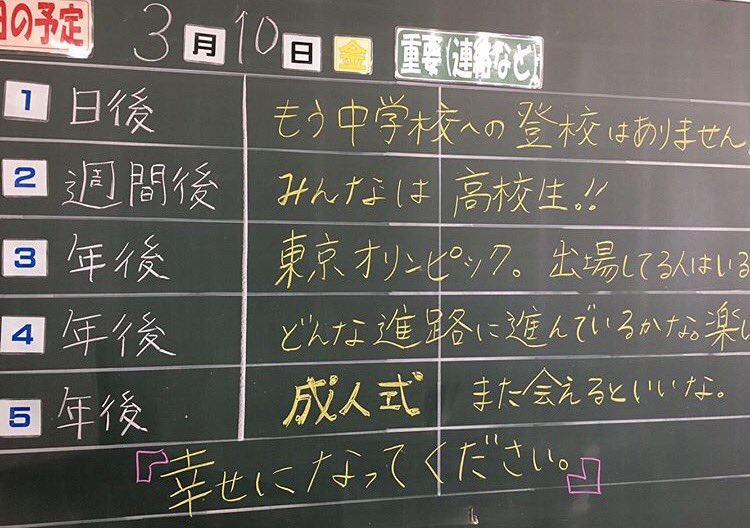 日の予定 3月10日 金 重要(連絡など)
1 日後 もう中学校への登校はありません。
2 週間後 みんなは高校生!!
3 年後 東京オリンピック。出場してる人はいる
4 年後 どんな進路に進んでいるかな。楽し
5 年後 成人式 また会えるといいな。
『幸せになってください。』